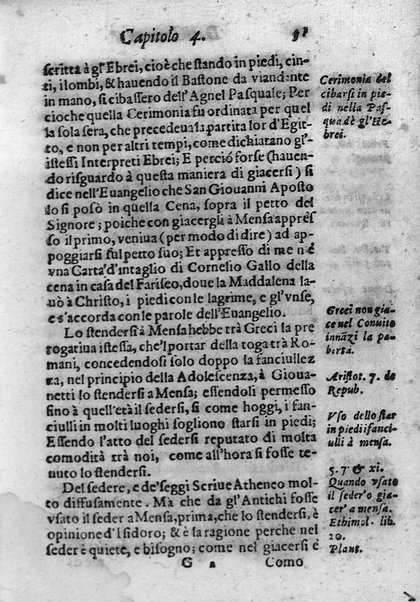 Capitolo 4. 51
scritta à gl'Ebrei, cioè che stando in piedi, cin-
ti, i lombi, & hauendo il Bastone da viandante
in mano, si cibassero dell'Agnel Pasquale; Per
cioche quella Cerimonia fu ordinata per quel
la sola sera, che precedeua la partita lor d'Egit
to, e non per altri tempi, come dichiarano gl'
istessi Interpreti Ebrei; E perciò forse (hauen-
do risguardo à questa maniera di giacersi) si
dice nell'Euangelio che San Giouanni Aposto
lo si posò in quella Cena, sopra il petto del
Signore; poiche con giacergli à Mensa appres
so il primo, veniua (per modo di dire) ad ap-
poggiarsi sul petto suo; Et appresso di me n'è
vna Carta d'intaglio di Cornelio Gallo della
cena in casa del Fariseo, doue la Maddalena la-
uò à Christo, i piedi con le lagrime, e gl'vnse,
e s'accorda con le parole dell'Euangelio.
Lo stendersi à Mensa hebbe trà Greci la pre
rogatiua istessa, che'l portar della toga trà Ro-
mani, concedendosi solo doppo la fanciullez
za, nel principio della Adolescenza, à Gioua-
netti lo stendersi à Mensa; essendoli permesso
sino à quell'età il sedersi, si come hoggi, i fan-
ciulli in molti luoghi sogliono starsi in piedi;
Essendo l'atto del sedersi reputato di molta
comodità trà noi, come all'hora si fosse te-
nuto lo stendersi.
Del sedere, e de' seggi Scriue Atheneo mol-
to diffusamente. Mà che da gl'Antichi fosse
vsato il seder à Mensa, prima, che lo stendersi, è
opinione d'Isidoro; & è la ragione perche nel
seder è quiete, e bisogno; come nel giacersi è
G 2 Como
Cerimonia del
cibarsi in pie
di nella Pas-
qua de gl'He
brei.
Greci non gia
ce nel Conuito
innãzi la pu
bertà.
Aristot. 7. de
Repub.
Vso dello star
in piedi fanci
ulli à mensa.
5. 7 & xi.
Quando vsato
il seder'o gia-
cer'a mensa.
Ethimol. lib.
20.
Plant.